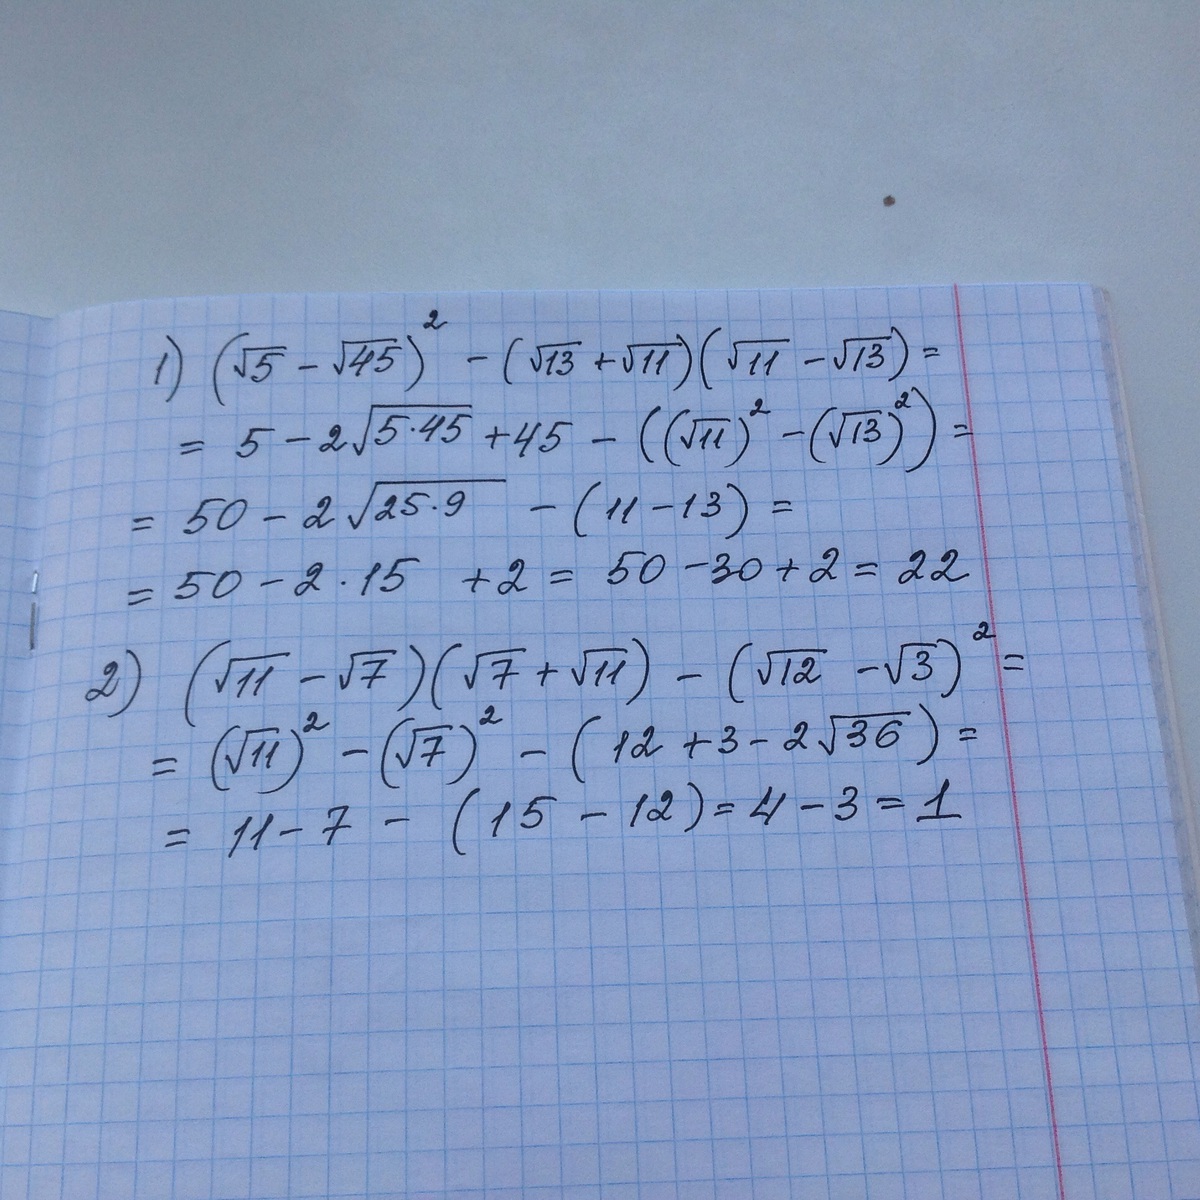 1) (√5 − √45)² − (√13 + √11)(√11 − √13) =
= 5 − 2√5·45 + 45 − ((√11)² − (√13)²) =
= 50 − 2√25·9 − (11 − 13) =
= 50 − 2·15 + 2 = 50 − 30 + 2 = 22
2) (√11 − √7)(√7 + √11) − (√12 − √3)² =
= (√11)² − (√7)² − (12 + 3 − 2√36) =
= 11 − 7 − (15 − 12) = 4 − 3 = 1